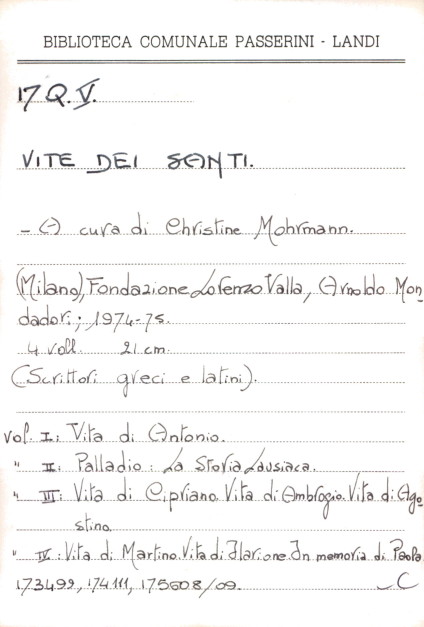 BIBLIOTECA COMUNALE PASSERINI - LANDI
17 Q. V.
VITE DEI SANTI.
- A cura di Christine Mohrmann.
(Milano), Fondazione Lorenzo Valla, Arnoldo Mon
dadori; 1974-75.
4 voll. 21 cm.
(Scrittori greci e latini).
vol. I: Vita di Antonio.
" II: Palladio: La Storia Lausiaca.
" III: Vita di Cipriano. Vita di Ambrogio. Vita di Ago=
stino.
" IV: Vita di Martino. Vita di Ilarione. In memoria di Paola
173499, 174111, 175608/09. C